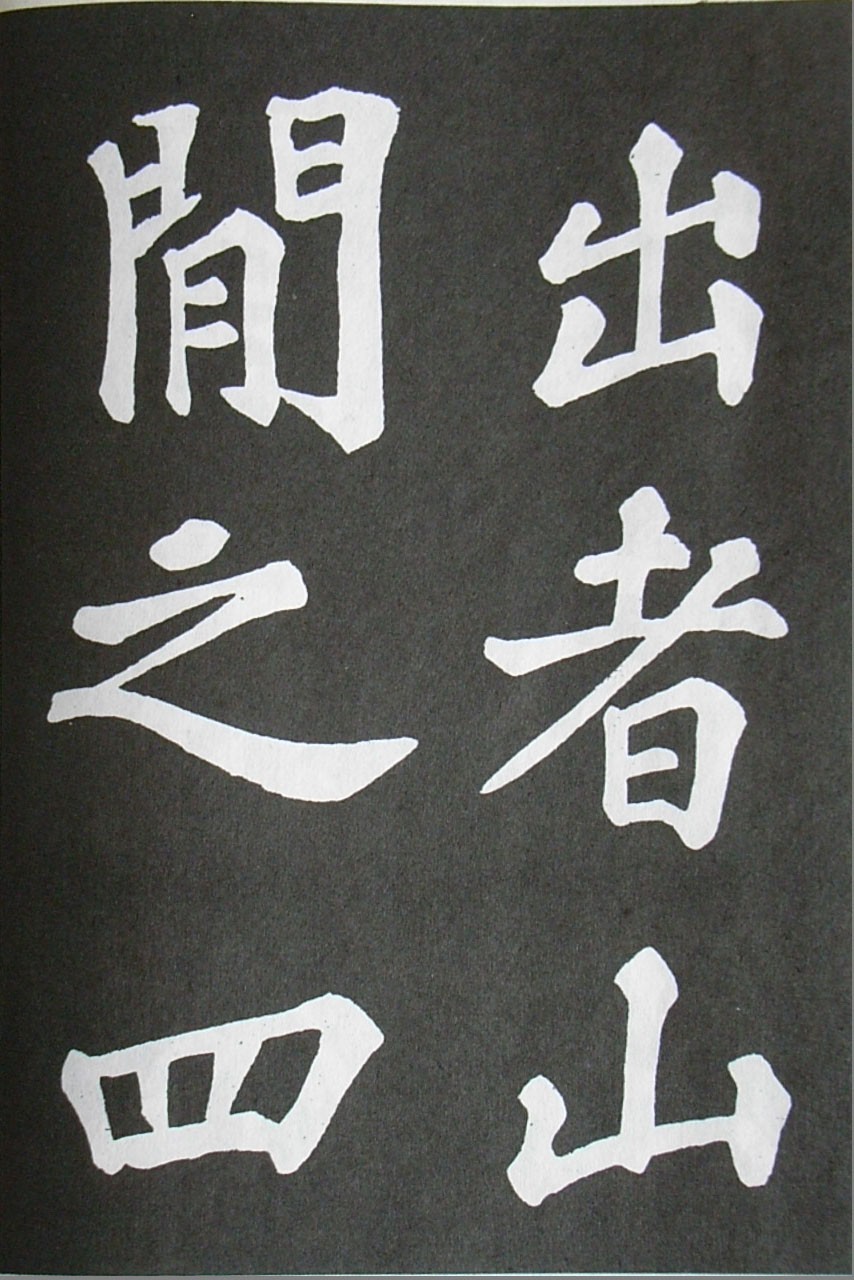 出者山
閒之四